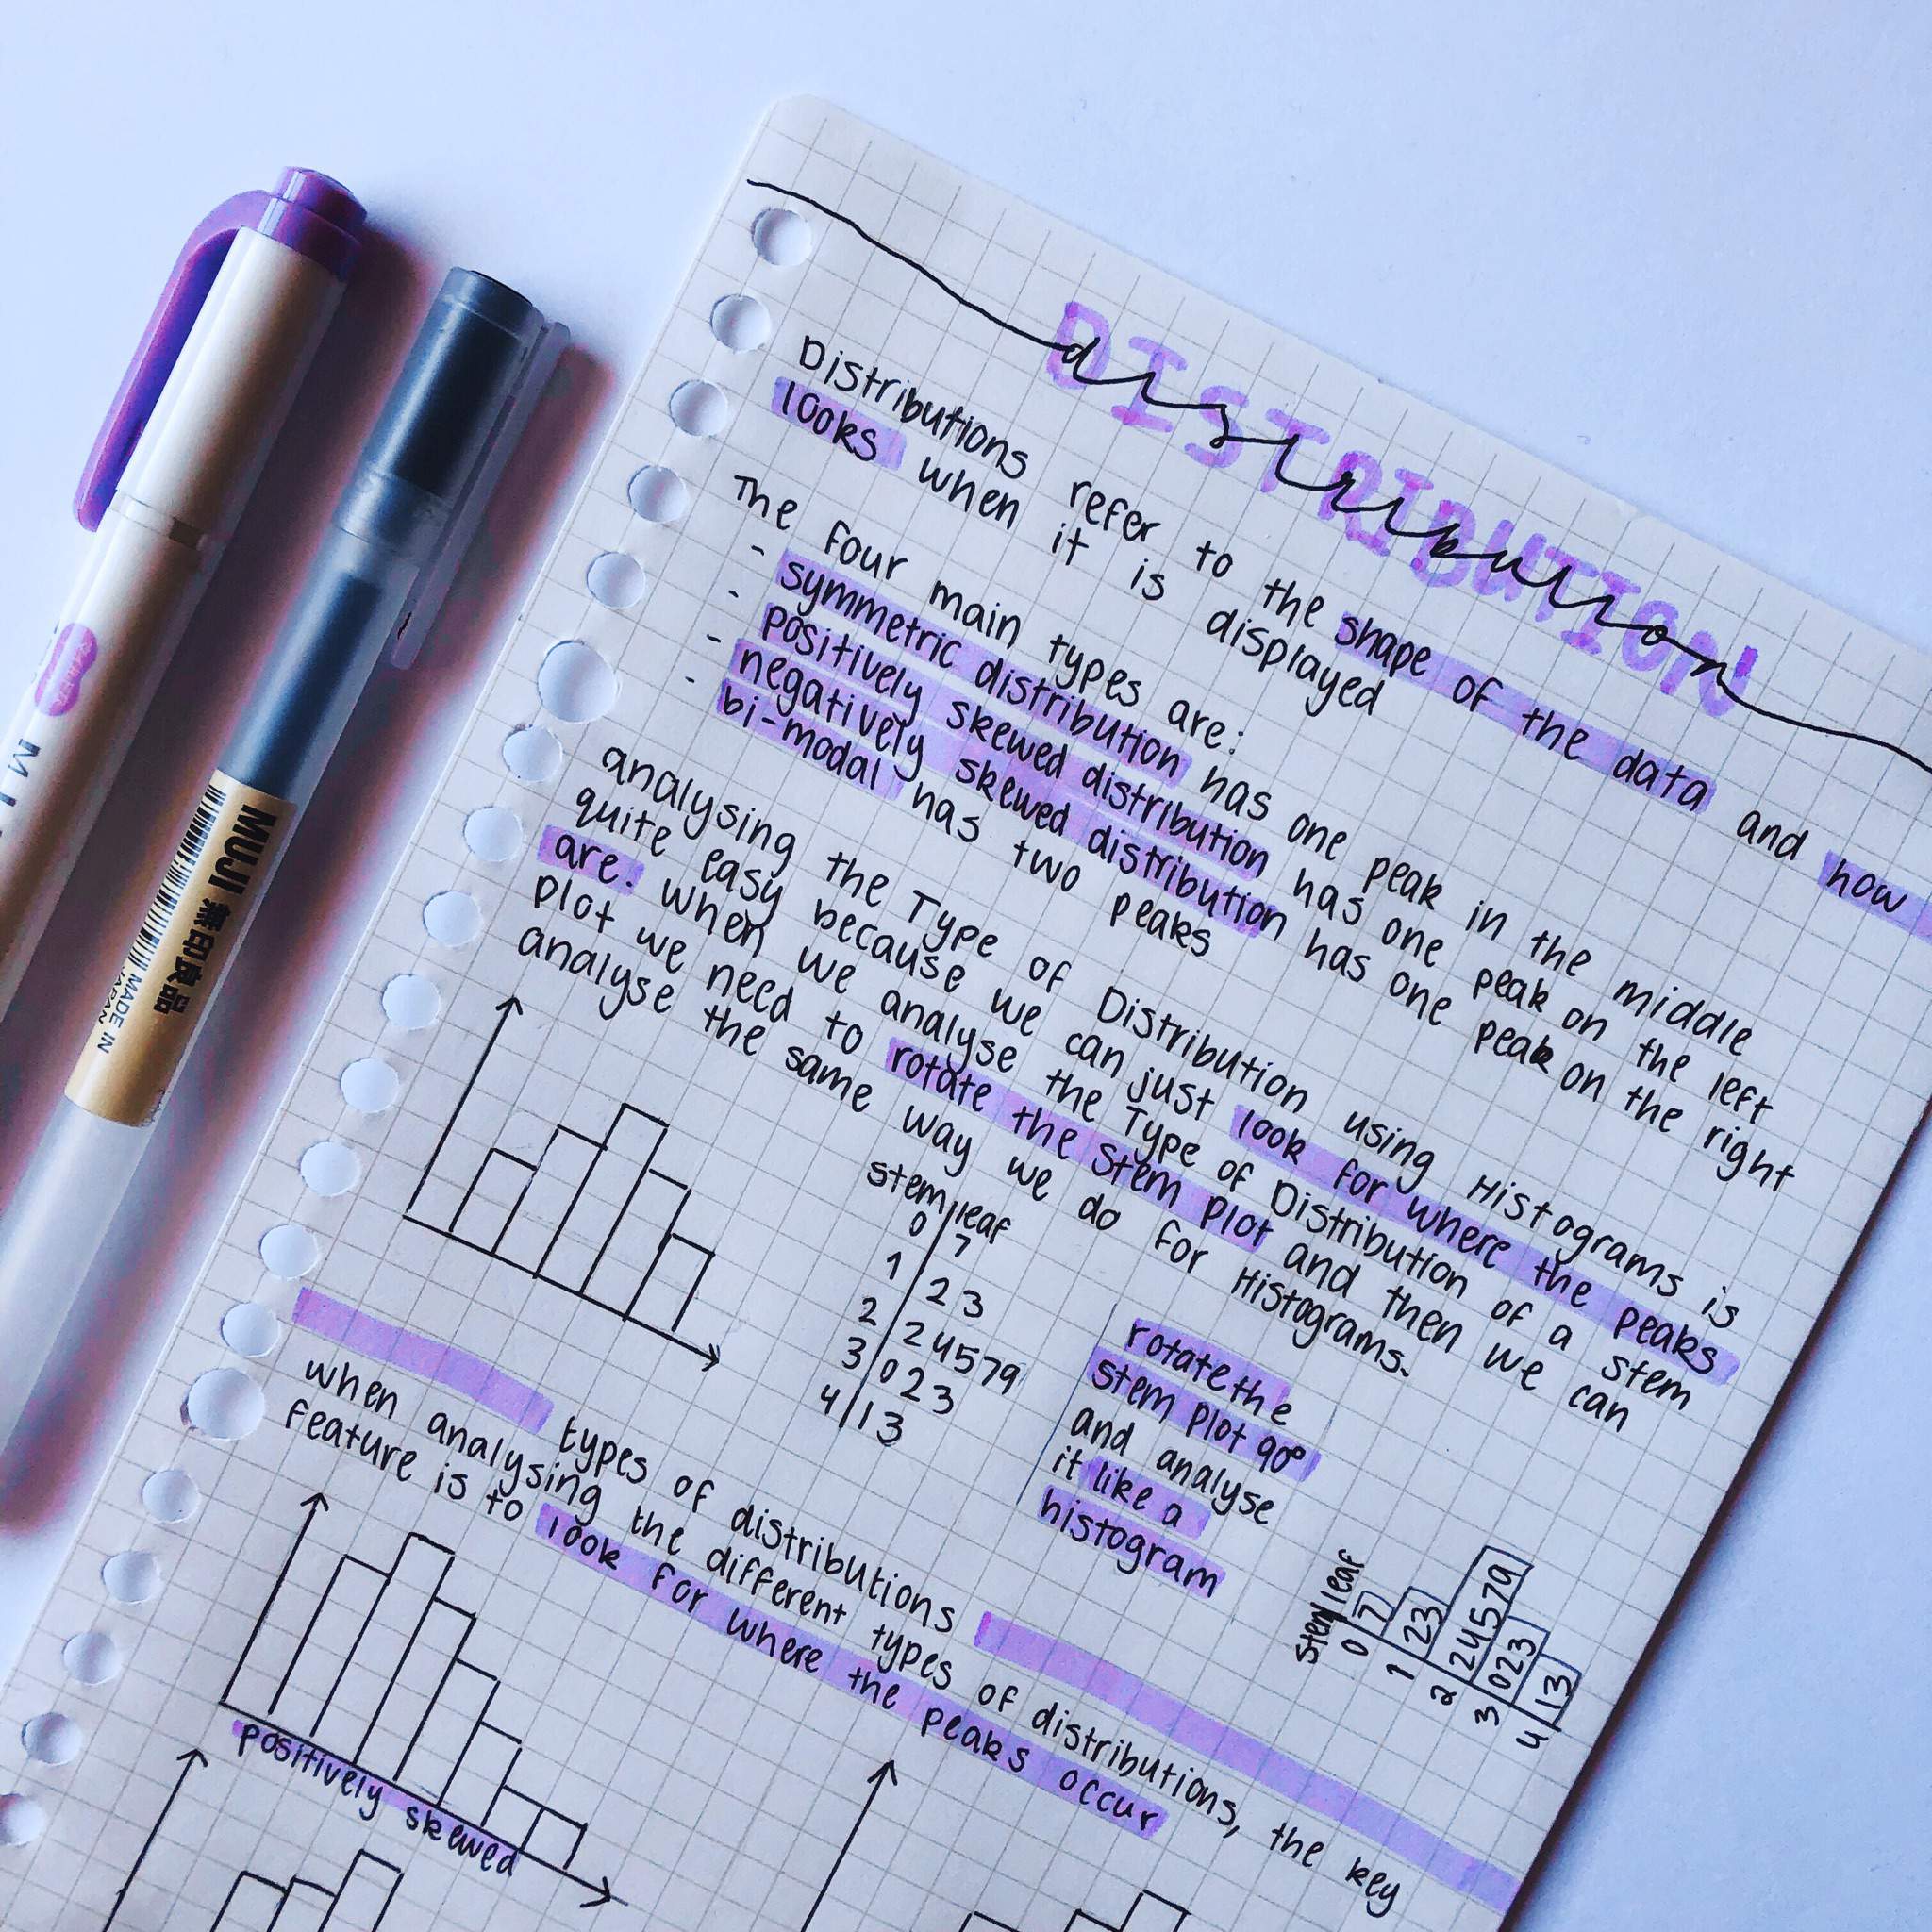 DISTRIBUTION
distribution
Distributions refer to the shape of the data and how
looks when it is displayed
The four main types are:
- symmetric distribution has one peak in the middle
- positively skewed distribution has one peak on the left
- negatively skewed distribution has one peak on the right
- bi-modal has two peaks
analysing the Type of Distribution using Histograms is
quite easy because we can just look for where the peaks
are. When we analyse the Type of Distribution of a stem
plot we need to rotate the stem plot and then we can
analyse the same way we do for Histograms.
stem leaf
0 7
1 2 3
2 2 4 5 7 9
3 0 2 3
4 1 3
rotate the
stem plot 90°
and analyse
it like a
histogram
stem leaf
0 7
1 2 3
2 2 4 5 7 9
3 0 2 3
4 1 3
types of distributions
when analysing the different types of distributions, the key
feature is to look for where the peaks occur
positively skewed
MUJI 無印良品
MADE IN
JAPAN